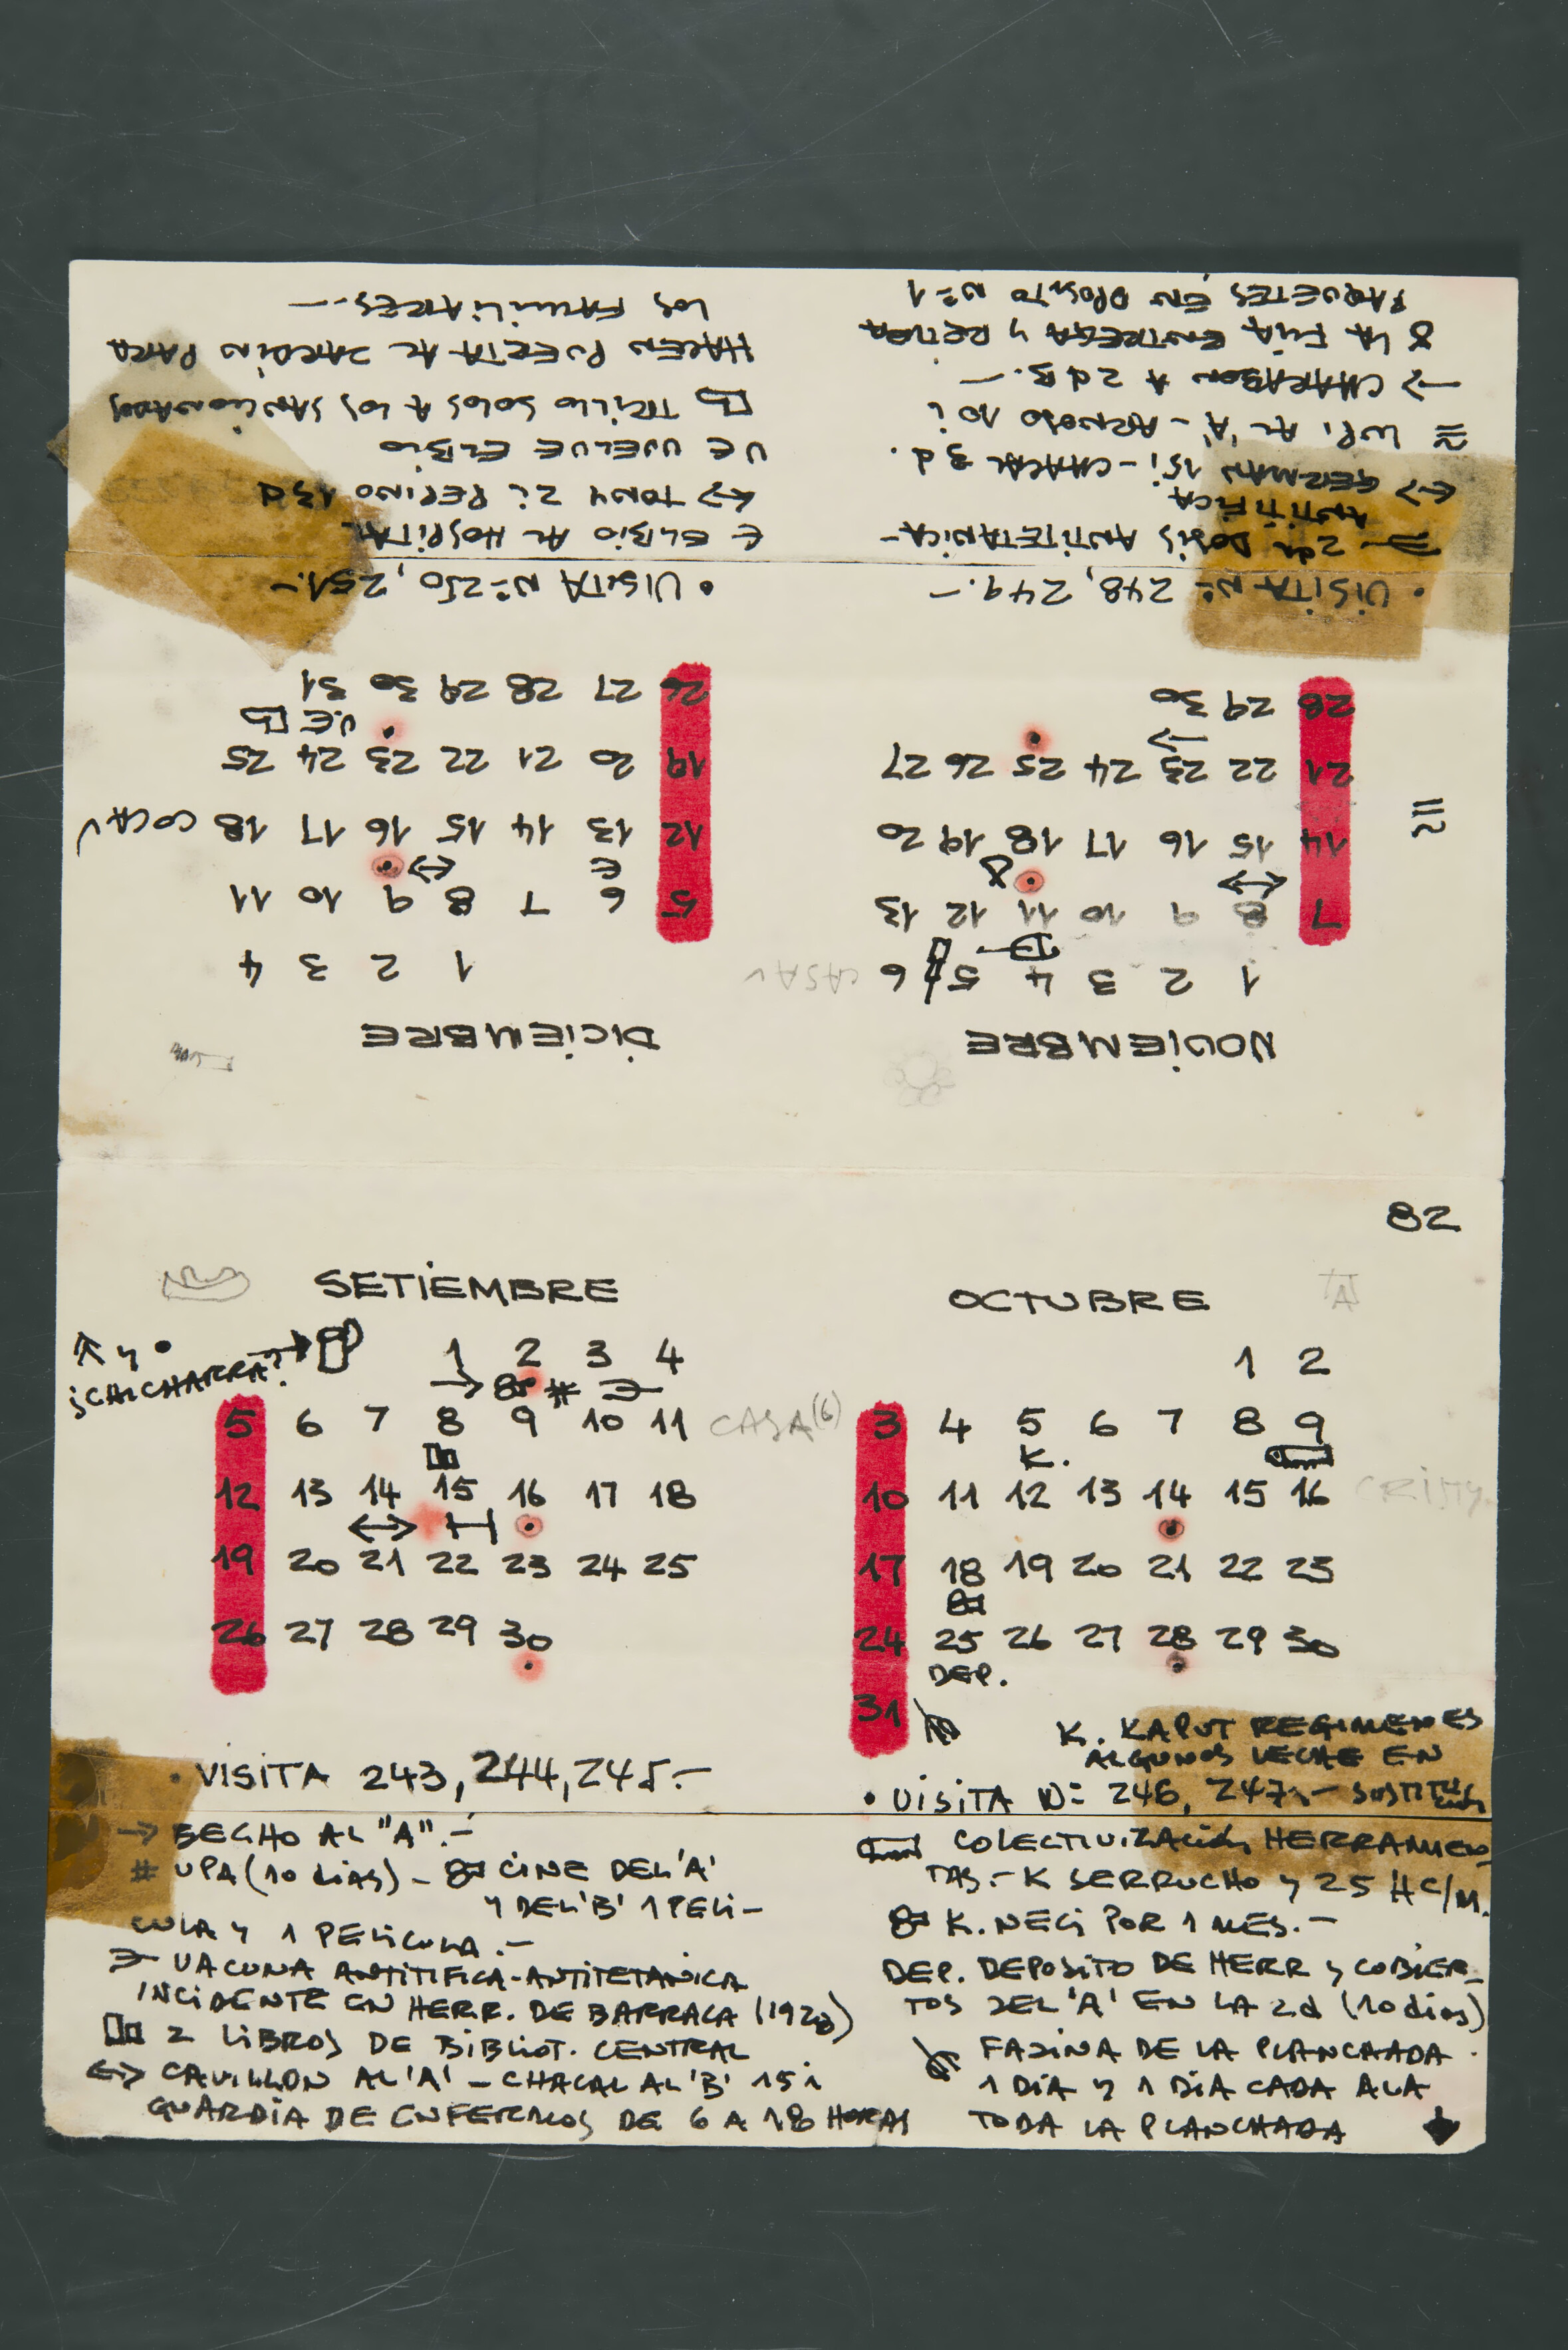 82
SETIEMBRE
y •
¡CHICHARRA?
1 2 3 4
#
5 6 7 8 9 10 11 CASA (6)
12 13 14 15 16 17 18
19 20 21 22 23 24 25
26 27 28 29 30
• VISITA 243, 244, 245.-
→ BECHO AL "A".-
# UPA (10 dias) - CINE DEL 'A'
Y DEL 'B' 1 PELI-
CULA Y 1 PELICULA.-
VACUNA ANTITIFICA-ANTITETANICA
INCIDENTE EN HERR. DE BARRACA
2 LIBROS DE BIBLIOT. CENTRAL
↔ CAVILLON AL 'A' - CHACAL AL 'B' 15 i
GUARDIA DE ENFERMOS DE 6 A 18 HORAS
OCTUBRE
A
1 2
3 4 5 6 7 8 9
K.
10 11 12 13 14 15 16
17 18 19 20 21 22 23
24 25 26 27 28 29 30
DEP.
31
K. KAPUT REGIMENES
ALGUNOS LECHE EN
• VISITA Nº 246, 247.-
COLECTIVIZACIÓN HERRAMIEN-
TAS.- K SERRUCHO Y 25 HC/M.
K. NECI POR 1 MES.-
DEP. DEPOSITO DE HERR Y CUBIER-
TOS DEL 'A' EN LA 2d (10 dias)
FAJINA DE LA PLANCHADA.
1 DIA Y 1 DIA CADA ALA
TODA LA PLANCHADA
NOVIEMBRE
1 2 3 4 5 6 CASA
7 8 9 10 11 12 13
14 15 16 17 18 19 20
21 22 23 24 25 26 27
28 29 30
• VISITA Nº 248, 249.-
2da DOSIS ANTITETANICA-
ANTITIFICA
↔ GERMAN 15i - CHACAL 3d.
AL 'A' - ARNOLD 10 i
→ CHARABON A 2d B.-
LA FILA ENTREGA Y RETIRA
PAQUETES EN DPOSITO Nº 1
DICIEMBRE
1 2 3 4
5 6 7 8 9 10 11
12 13 14 15 16 17 18 COCA
19 20 21 22 23 24 25
U.E
26 27 28 29 30 31
• VISITA Nº 250, 251.-
E ELBIO AL HOSPITAL
↔ TONY 2i PEPINO 13d
UE VUELVE ELBIO
TRILLO SOLOS A LOS SANCIONADOS
HACEN PUERTA AL JARDIN PARA
LOS FAMILIARES.-